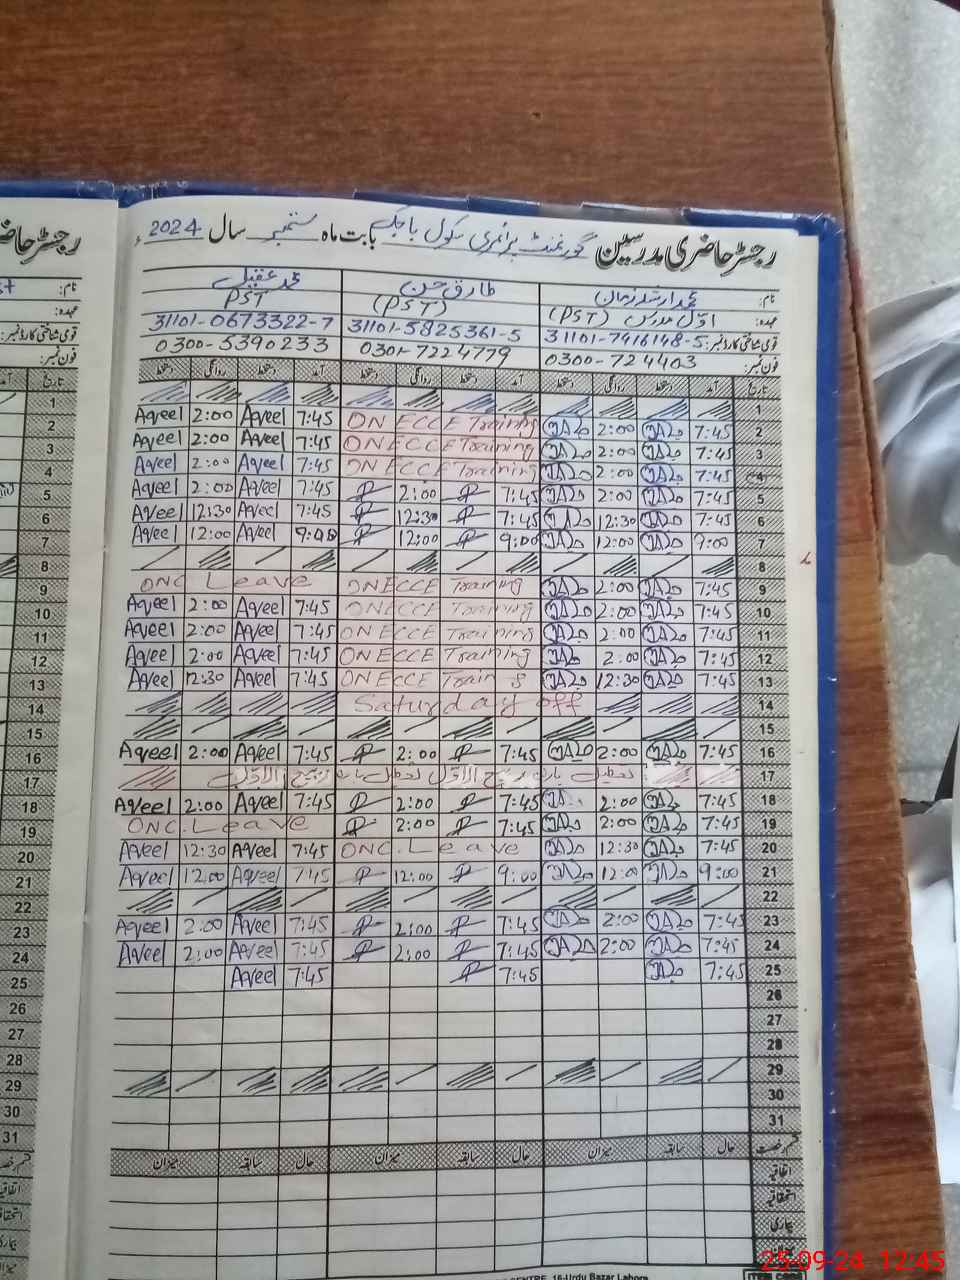 رجسٹر حاضری مدرسین گورنمنٹ پرائمری سکول بابت ماہ ستمبر سال 2024ء
نام: طارق حسن محمد عقیل
عہدہ: اوّل مدرس (PST) (PST) PST
قومی شناختی کارڈ نمبر: 31101-7416148-5 31101-5825361-5 31101-0673322-7
فون نمبر: 0300-724403 0301-7224779 0300-5390233
تاریخ آمد دستخط روانگی دستخط آمد دستخط روانگی دستخط آمد دستخط روانگی دستخط
1
Aqeel 2:00 Aqeel 7:45 ON ECCE Training 2:00 7:45 2
Aqeel 2:00 Aqeel 7:45 ON ECCE Training 2:00 7:45 3
Aqeel 2:00 Aqeel 7:45 ON ECCE Training 2:00 7:45 4
Aqeel 2:00 Aqeel 7:45 2:00 7:45 2:00 7:45 5
Aqeel 12:30 Aqeel 7:45 12:30 7:45 12:30 7:45 6
Aqeel 12:00 Aqeel 9:00 12:00 9:00 12:00 9:00 7
8
ONC Leave ON ECCE Training 2:00 7:45 9
Aqeel 2:00 Aqeel 7:45 ON ECCE Training 2:00 7:45 10
Aqeel 2:00 Aqeel 7:45 ON ECCE Training 2:00 7:45 11
Aqeel 2:00 Aqeel 7:45 ON ECCE Training 2:00 7:45 12
Aqeel 12:30 Aqeel 7:45 ON ECCE 12:30 7:45 13
Saturday off 14
15
Aqeel 2:00 Aqeel 7:45 2:00 7:45 2:00 7:45 16
تعطیل ربیع الاوّل تعطیل ربیع الاوّل 17
Aqeel 2:00 Aqeel 7:45 2:00 7:45 2:00 7:45 18
ONC. Leave 2:00 7:45 2:00 7:45 19
Aqeel 12:30 Aqeel 7:45 ONC. Leave 12:30 7:45 20
Aqeel 12:00 Aqeel 7:45 12:00 9:00 12:00 9:00 21
22
Aqeel 2:00 Aqeel 7:45 2:00 7:45 2:00 7:45 23
Aqeel 2:00 Aqeel 7:45 2:00 7:45 2:00 7:45 24
Aqeel 7:45 7:45 7:45 25
26
27
28
29
30
31
حال سابقہ میزان حال سابقہ میزان حال سابقہ میزان
اتفاقیہ
استحقاقیہ
بیماری
16-Urdu Bazar Lahore
رجسٹر حاضری
نام:
عہدہ:
قومی شناختی کارڈ نمبر:
فون نمبر:
تاریخ
1
2
3
4
5
6
7
8
9
10
11
12
13
14
15
16
17
18
19
20
21
22
23
24
25
26
27
28
29
30
31
اتفاقیہ
بیماری
25-09-24 12:45